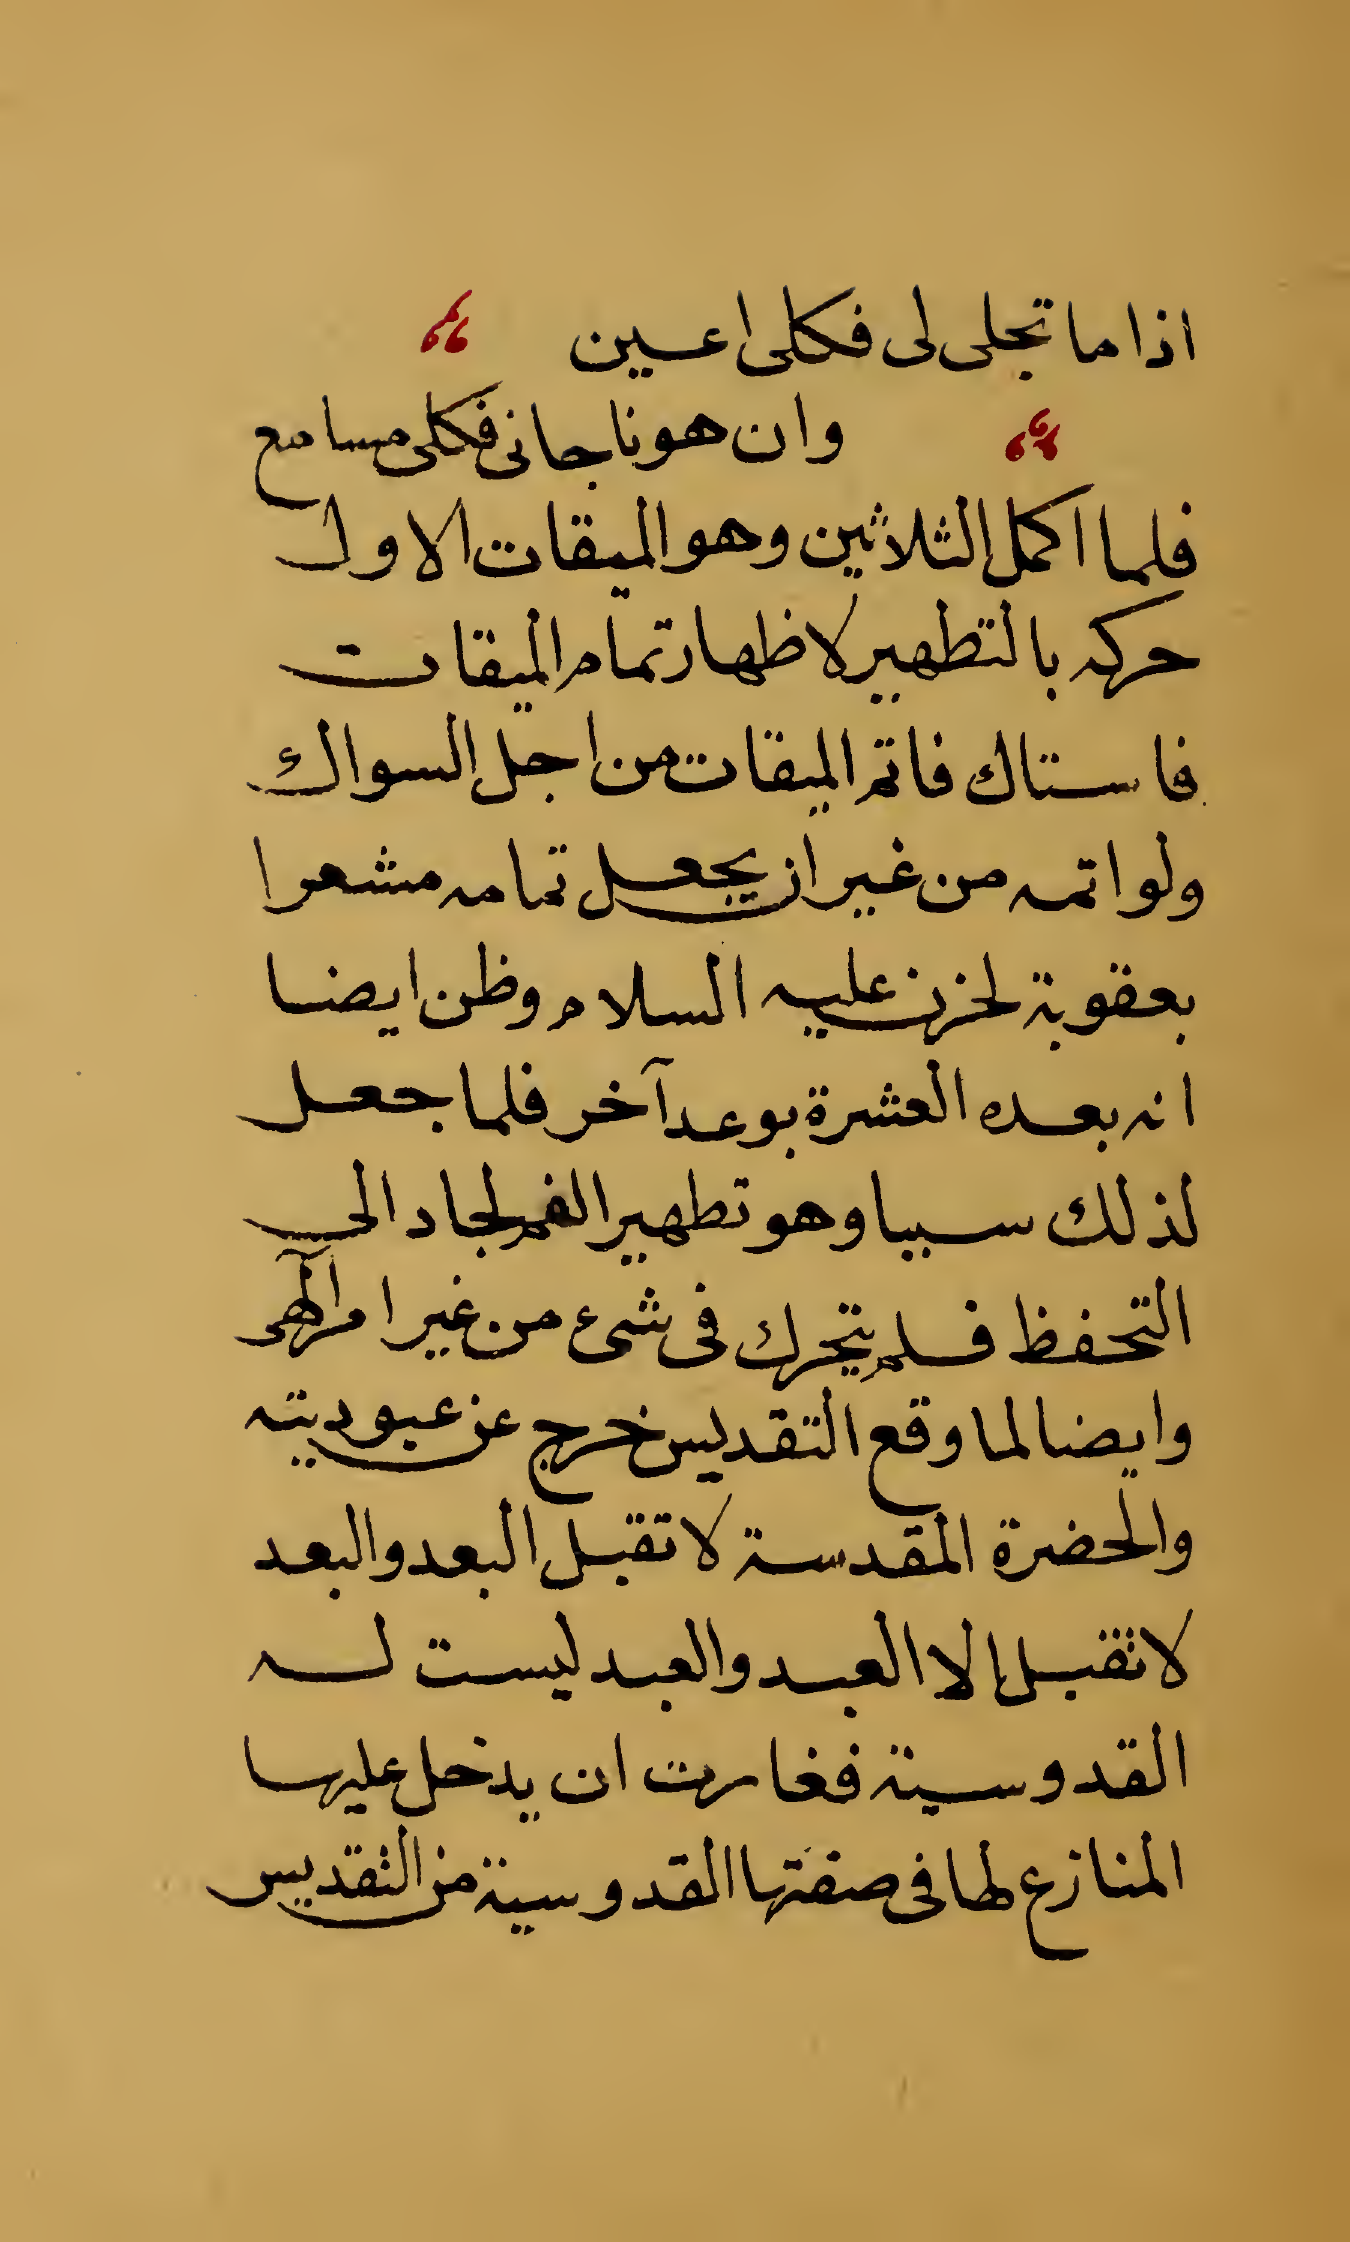 اذا ما تجلى لى فكلى اعين
وان هو ناجانى فكلى مسامع
فلما اكمل الثلاثين وهو الميقات الاول
حركه بالتطهير لاظهار تمام الميقات
فاستاك فاتم الميقات من اجل السواك
ولو اتمه من غير ان يجعل تمامه مشعرا
بعقوبة لحزن عليه السلام وظن ايضا
انه بعده العشرة بوعد آخر فلما جعل
لذلك سببا وهو تطهير الفم لجاد الى
التحفظ فلم يتحرك فى شىء من غير امر الٓهى
وايضا لما وقع التقديس خرج عن عبوديته
والحضرة المقدسة لا تقبل البعد والبعد
لا تقبل الا العبد والعبد ليست له
القدوسية فغارت ان يدخل عليها
المنازع لها فى صفتها القدوسية من التقديس